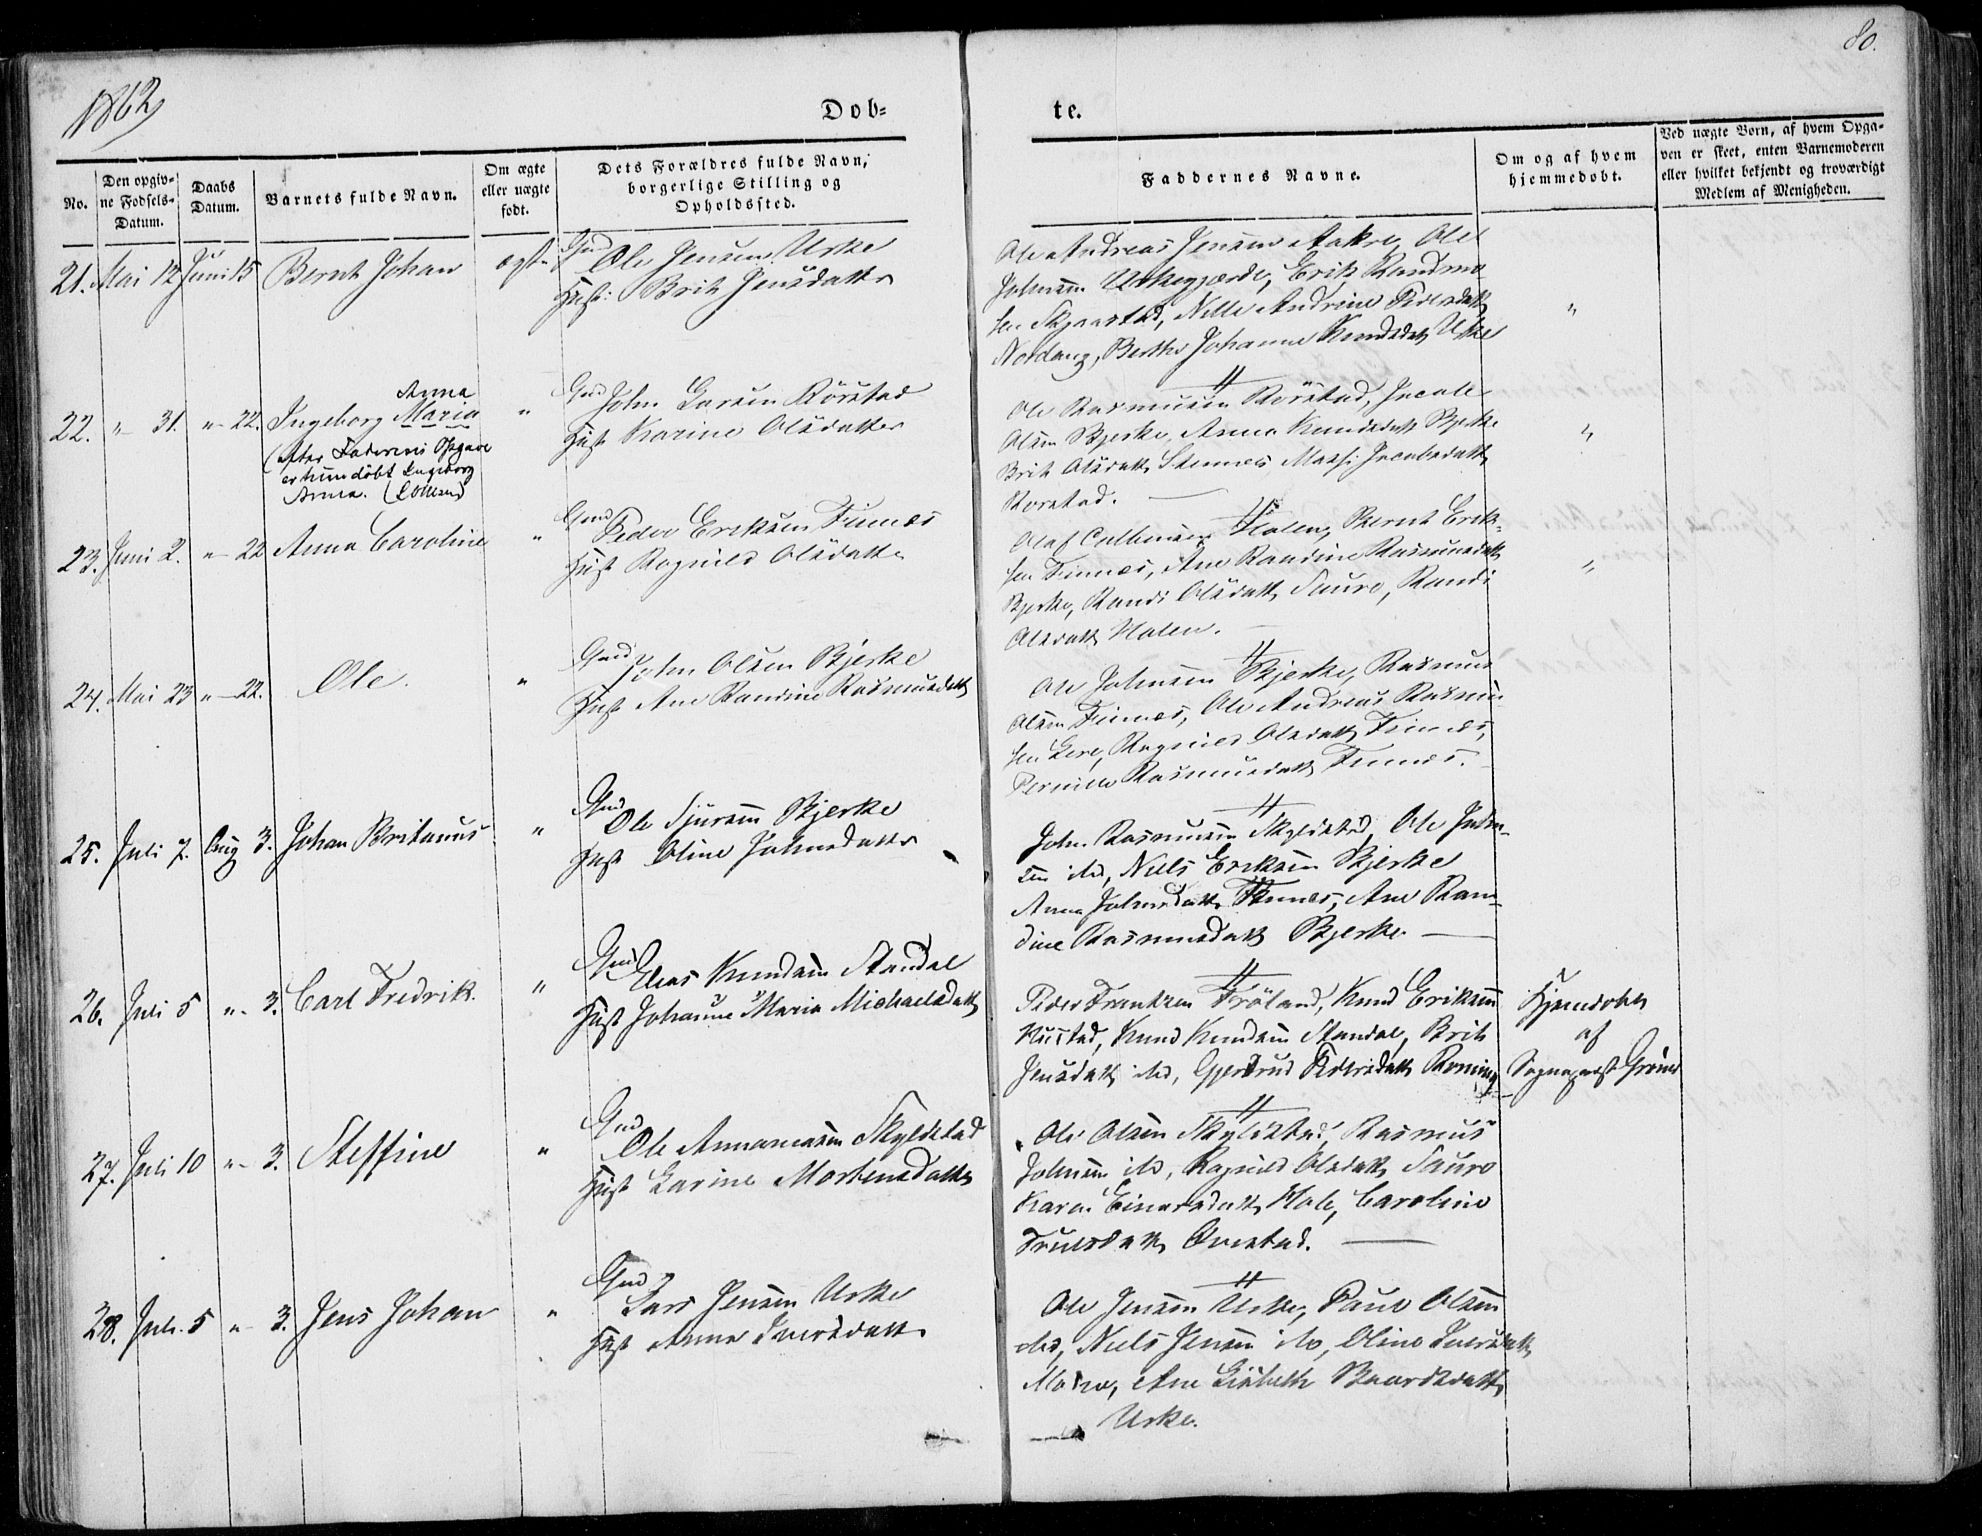 1862
80.
Dob=
te.
No.
Den opgiv=
ne Fodsels=
Datum.
Daabs
Datum.
Barnets fulde Navn.
Om ægte
eller uægte
fodt.
Dets Forældres fulde Navn,
borgerlige Stilling og
Opholdssted.
Faddernes Navne.
Om og af hvem
hjemmedobt.
Ved uægte Born, af hvem Opga-
ven er skeet, enten Barnemoderen
eller hvilket bekjendt og troværdigt
Medlem af Menigheden.
21. Mai 12 Juni 15 Bernt Johan ægte Gmd Ole Jensen Urke
Hust: Brit Jensdatter
Ole Andreas Jensen Aakre, Ole
Johnsen Urkegjærde, Erik Rasmu
sen Skjaastad, Nille Andrine Pedersdatt
Nordang, Berthe Johanne Knudsdatt Urke
"
22. " 31. "- 22. Ingeborg Maria
Anna
(efter Faderens Opgave
er hun döbt Ingeborg
Anna.
" Gmd John Larsen Rörstad
Hust Karine Olsdatter
Ole Rasmusen Rörstad, Jacob
Olsen Bjerke, Anna Knudsdatt Bjerke
Brit Olsdatt Stennes, Jacobsdatt
Rorstad.
"
23. Juni 2. "- 22 Anna Caroline " Gmd Peder Eriksen Finnes
Hust Ragnild Olsdatter
Olaf Halen, Bernt Erik-
sen Finnes, Ane Randine Rasmusdatt
Bjerke, Randi Olsdatt Saure, Randi
Olsdatt Halen.
"
24. Mai 23 "- 22. Ole. " Gmd John Olsen Bjerke
Hust Ane Randine Rasmusdatt
Ole Johnsen Bjerke, Rasmus
Olsen Finnes, Ole Andreas Rasmu
sen Lere, Ragnild Olsdatt Finnes,
Pernille Rasmusdatt Finnes.
25. Juli 7. Aug 3. Johan Britanus " Gmd Ole Sjursen Bjerke
Hust Oline Johnsdatter
John Rasmusen Skyldstad, Ole John-
sen ibd, Niels Eriksen Bjerke
Anna Johnsdatt Finnes, Ane Ran-
dine Rasmusdatt Bjerke
26. Juli 5 "- 3. Carl Fredrik. " Gmd Elias Knudsen Standal
Hust Johanne Maria Michaelsdatt
Peder Frantzen Fröland, Knud Eriksen
Rustad, Knud Knudsen Standal, Brit
Jensdatt ibd, Gjertrud Pedersdatt
Hjemdobt
af
Sognepræst Gröner
27. Juli 10 "- 3. Steffine " Gmd Ole Annanasen Skyldstad
Hust Karine Mortensdatter
Ole Olsen Skyldstad, Rasmus
Johnsen ibd, Ragnild Olsdatt Saure
Karen Einarsdatt Hole, Caroline
Trulsdatt Ovrstad.
28. Juli. 5 " 3. Jens Johan " Gmd Lars Jensen Urke
Hust Anne Iversdatter
Ole Jensen Urke, Paul Olsen
ibd, Niels Jensen ibd, Oline Iversdatt
Ane Lisbeth Baardsdatt
Urke.